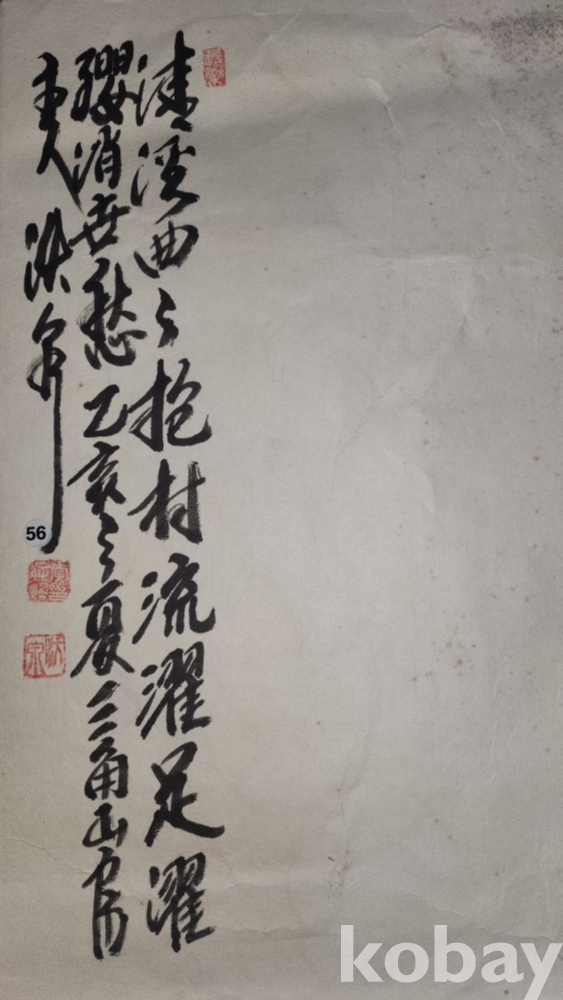 清溪曲〻抱村流濯足濯
纓消世愁乙亥之夏三角山房
主人
56
kobay